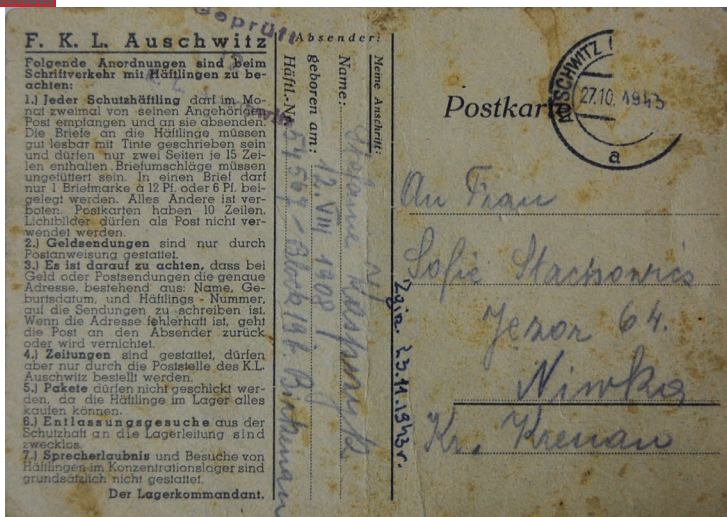 Geprüft
F. K. L. Auschwitz
Folgende Anordnungen sind beim
Schriftverkehr mit Häftlingen zu be-
achten:
1.) Jeder Schutzhäftling darf im Mo-
nat zweimal von seinen Angehörigen
Post empfangen und an sie absenden.
Die Briefe an die Häftlinge müssen
gut lesbar mit Tinte geschrieben sein
und dürfen nur zwei Seiten je 15 Zei-
len enthalten. Briefumschläge müssen
ungefüttert sein. In einen Brief darf
nur 1 Briefmarke à 12 Pf. oder 6 Pf. bei-
gelegt werden. Alles Andere ist ver-
boten. Postkarten haben 10 Zeilen.
Lichtbilder dürfen als Post nicht ver-
wendet werden.
2.) Geldsendungen sind nur durch
Postanweisung gestattet.
3.) Es ist darauf zu achten, dass bei
Geld oder Postsendungen die genaue
Adresse, bestehend aus: Name, Ge-
burtsdatum, und Häftlings - Nummer,
auf die Sendungen zu schreiben ist.
Wenn die Adresse fehlerhaft ist, geht
die Post an den Absender zurück
oder wird vernichtet.
4.) Zeitungen sind gestattet, dürfen
aber nur durch die Poststelle des K.L.
Auschwitz bestellt werden.
5.) Pakete dürfen nicht geschickt wer-
den, da die Häftlinge im Lager alles
kaufen können.
6.) Entlassungsgesuche aus der
Schutzhaft an die Lagerleitung sind
zwecklos.
7.) Sprecherlaubnis und Besuche von
Häftlingen im Konzentrationslager sind
grundsätzlich nicht gestattet.
Der Lagerkommandant.
Absender:
Meine Anschrift:
Name: Stefanie
geboren am: 12. VIII 1908
Häftl.-Nr. Birkenau
Zgin. 23.11.1943r.
Postkarte
AUSCHWITZ
27.10. 1943
a
An Frau
Sofie Stachowics
Jezor 64.
Niwka
Kr. Krenau